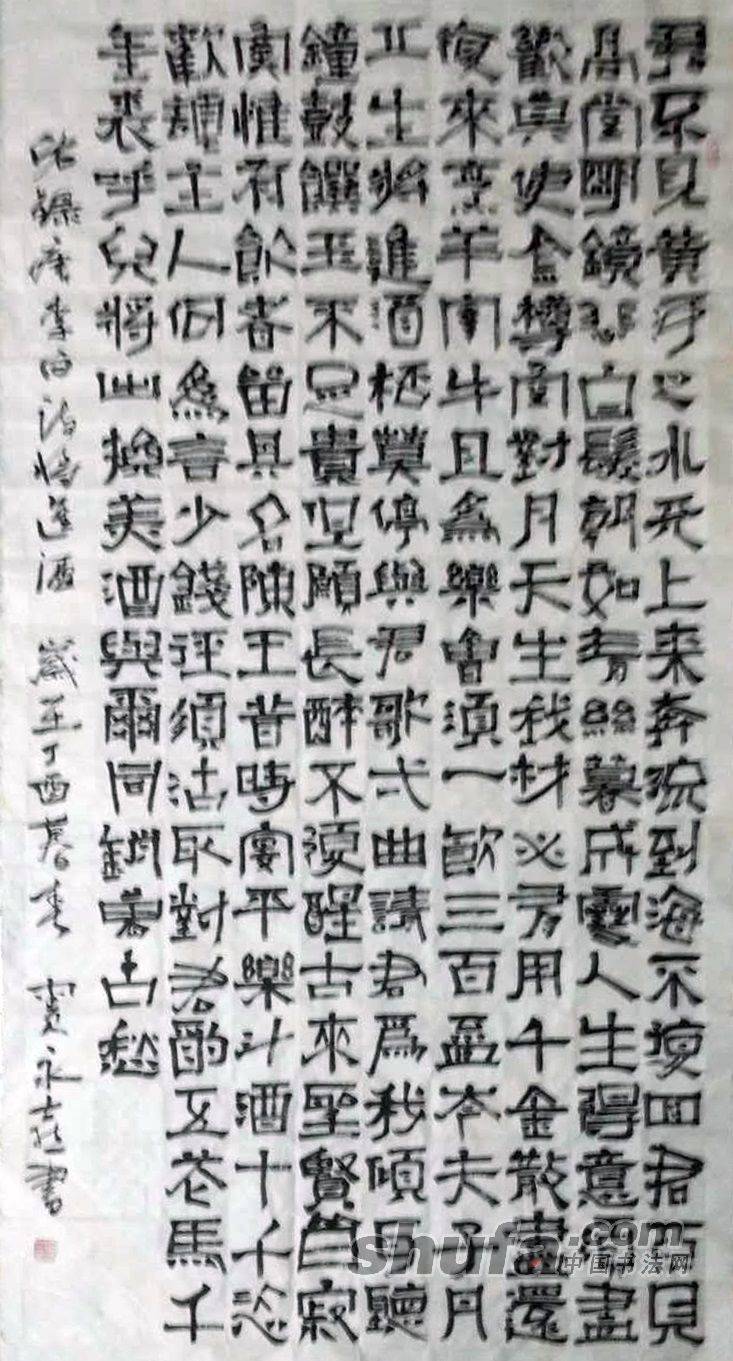 君不見黃河之水天上来奔流到海不復回君不見
高堂明鏡悲白髮朝如青絲暮成雪人生得意須盡
歡莫使金樽空對月天生我材必有用千金散盡還
復來烹羊宰牛且為樂會須一飲三百盃岑夫子丹
丘生將進酒杯莫停與君歌弌曲請君為我傾耳聽
鐘鼓饌玉不足貴但願長醉不須醒古來聖賢皆寂
寞惟有飲者留其名陳王昔時宴平樂斗酒十千恣
歡謔主人何為言少錢徑須沽取對君酌五花馬千
金裘呼兒將出換美酒與爾同銷萬古愁
錄唐李白詩將進酒 歲在丁酉暮春 永書
shufa.com
中国书法网